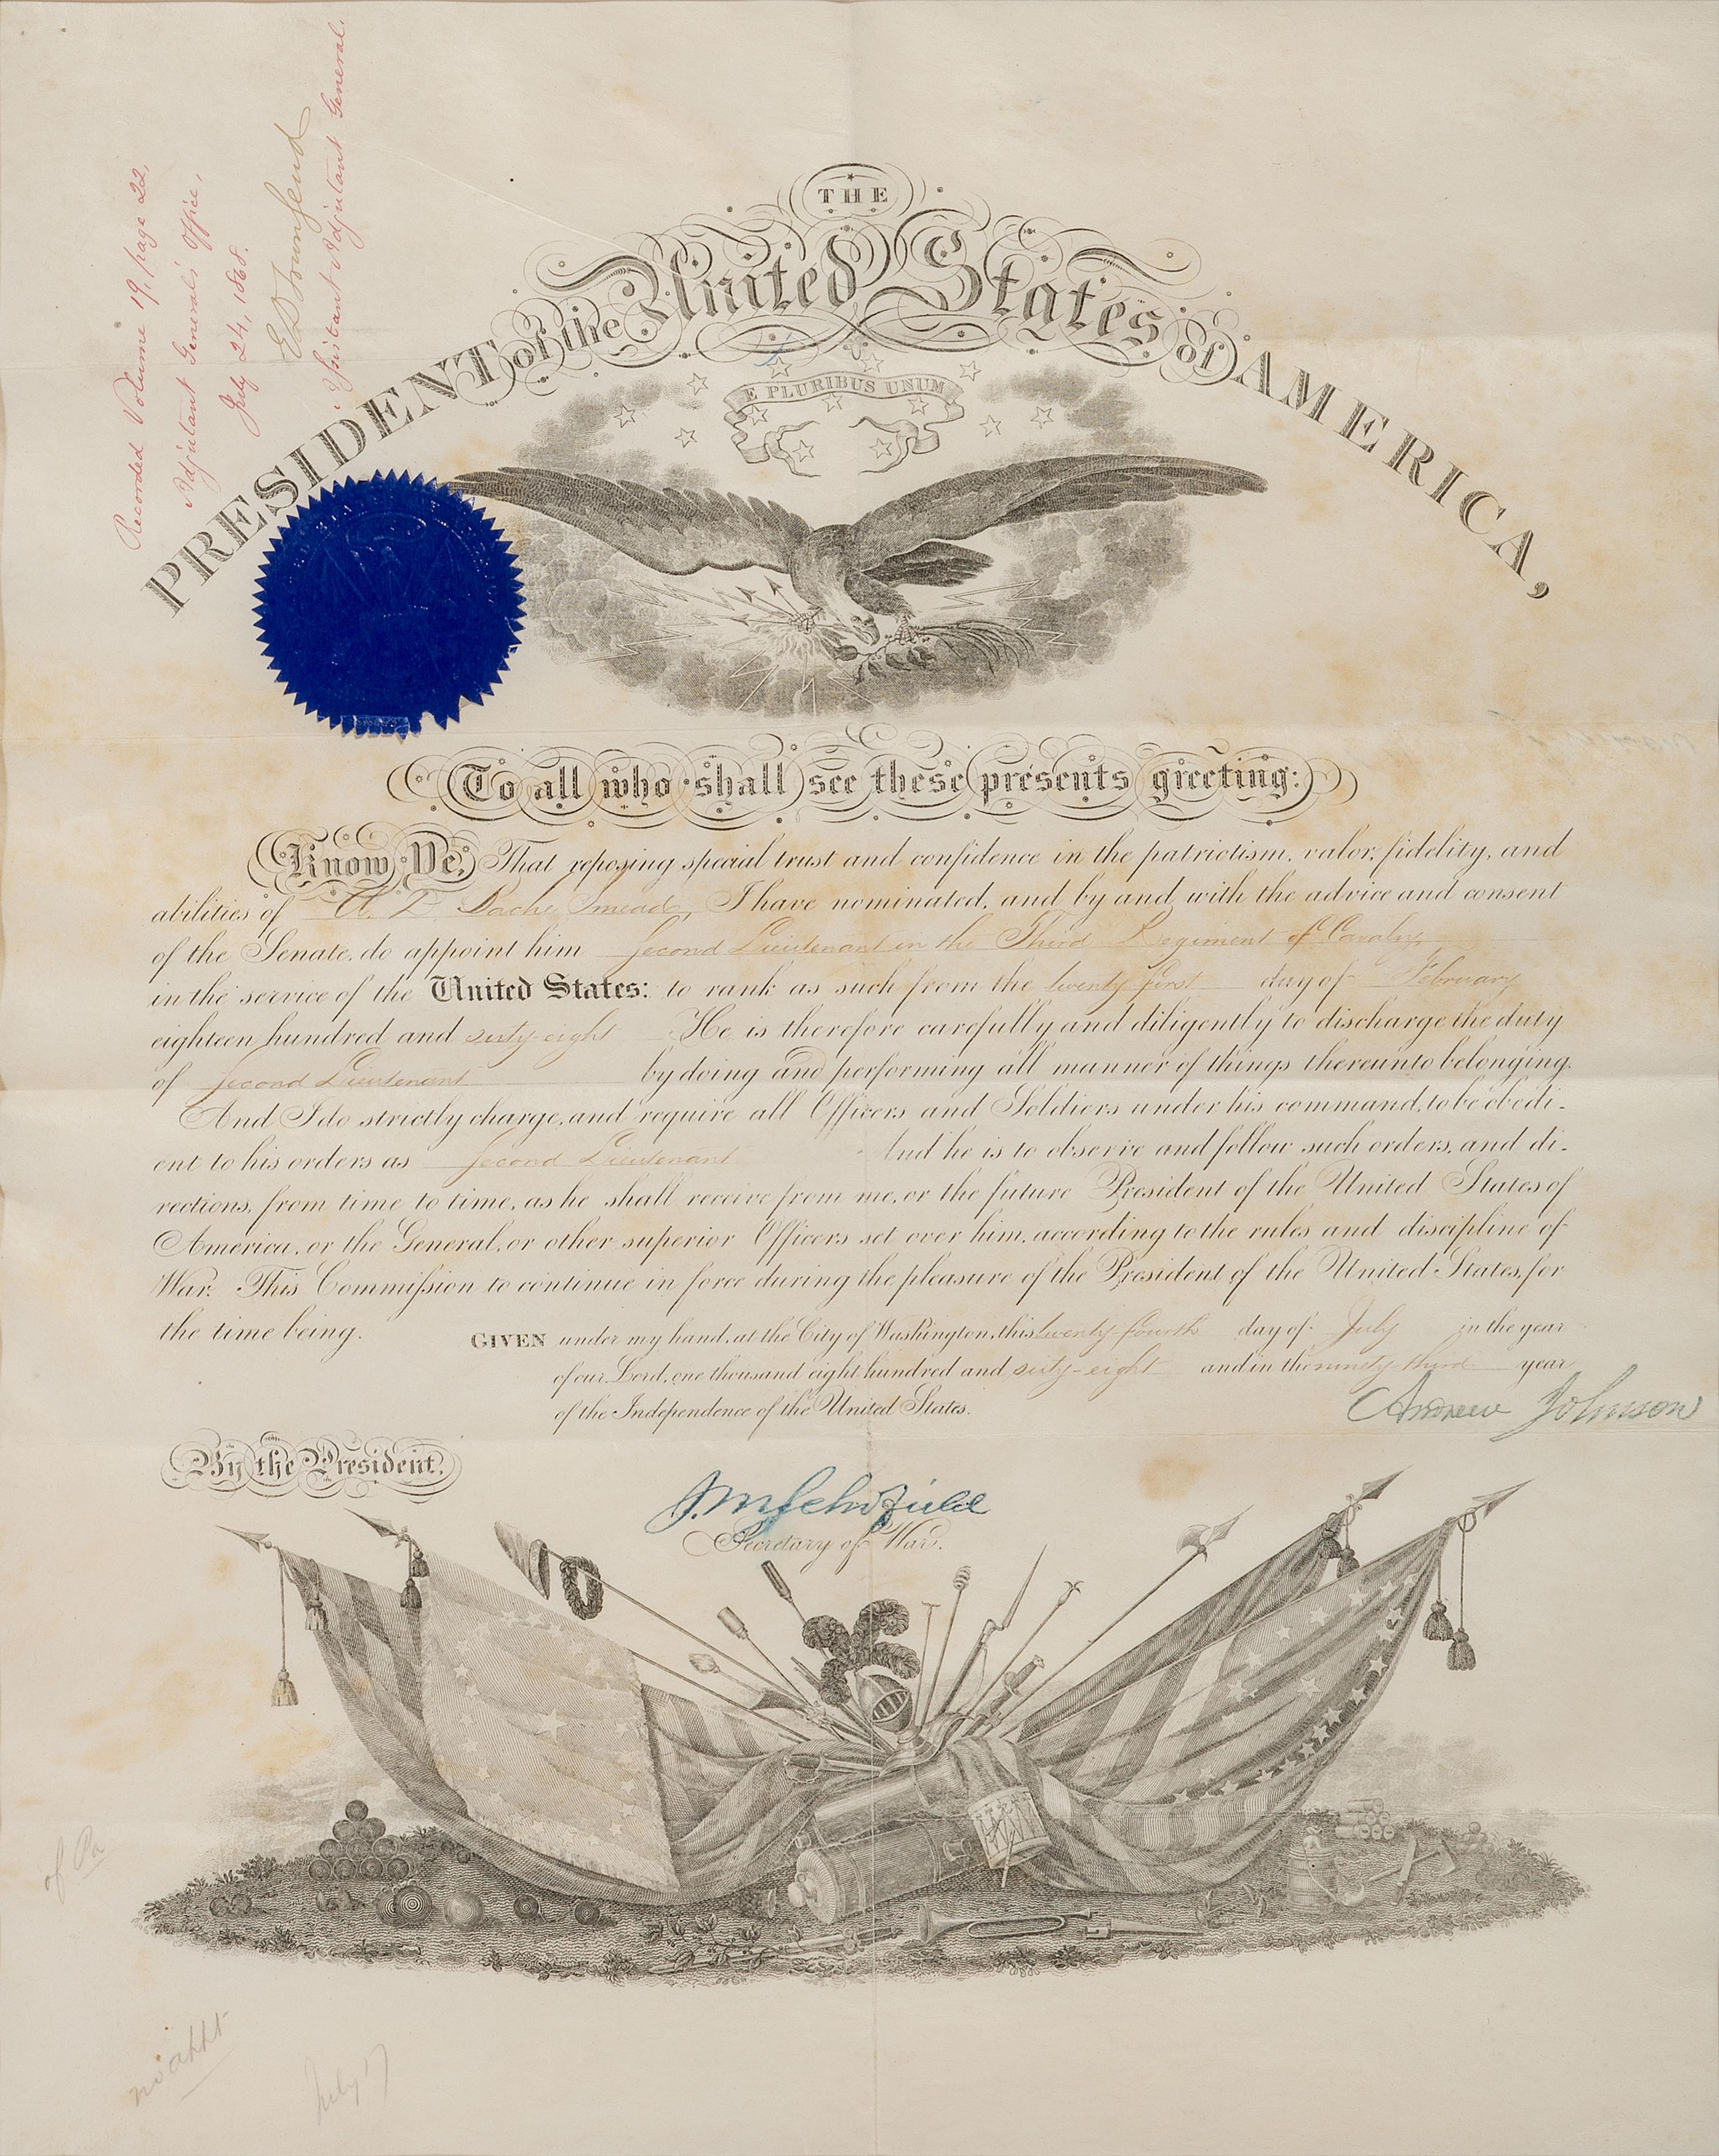 Recorded Volume 19, page 22,
Adjutant General's Office,
July 24, 1868.
E D Townsend
Assistant Adjutant General.
THE
PRESIDENT of the United States of AMERICA,
E PLURIBUS UNUM
To all who shall see these presents greeting:
Know Ye, That reposing special trust and confidence in the patriotism, valor, fidelity, and
abilities of A. D. Bache Smead, I have nominated, and by and with the advice and consent
of the Senate, do appoint him Second Lieutenant in the Third Regiment of Cavalry
in the service of the United States: to rank as such from the twenty first day of February
eighteen hundred and sixty-eight He is therefore carefully and diligently to discharge the duty
of Second Lieutenant by doing and performing all manner of things thereunto belonging.
And I do strictly charge, and require all Officers and Soldiers under his command, to be obedi-
ent to his orders as Second Lieutenant And he is to observe and follow such orders, and di-
rections, from time to time, as he shall receive from me, or the future President of the United States of
America, or the General, or other superior Officers set over him, according to the rules and discipline of
War. This Commission to continue in force during the pleasure of the President of the United States, for
the time being.
GIVEN under my hand, at the City of Washington, this twenty-fourth day of July in the year
of our Lord, one thousand eight hundred and sixty-eight and in the ninety third year
of the Independence of the United States.
Andrew Johnson
By the President,
J. M. Schofield
Secretary of War.
of Pa
July 17